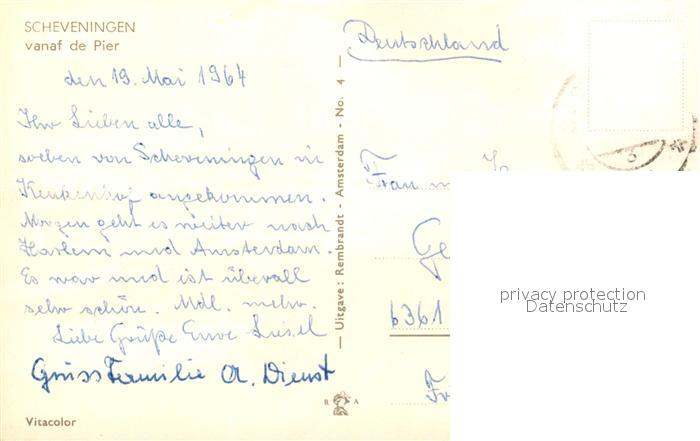 SCHEVENINGEN
vanaf de Pier
den 19. Mai 1964
Ihr Lieben alle,
soeben von Scheveningen in
Keukenhof angekommen.
Morgen geht es weiter nach
Harlem und Amsterdam.
Es war und ist überall
sehr schön. Mdl. mehr.
Liebe Grüße Eure Liesel
Gruss Familie A. Dienst
Vitacolor
Uitgave: Rembrandt - Amsterdam - No. 4
R A
Deutschland
Frau
Ge
6361
Fr
6
privacy protection
Datenschutz